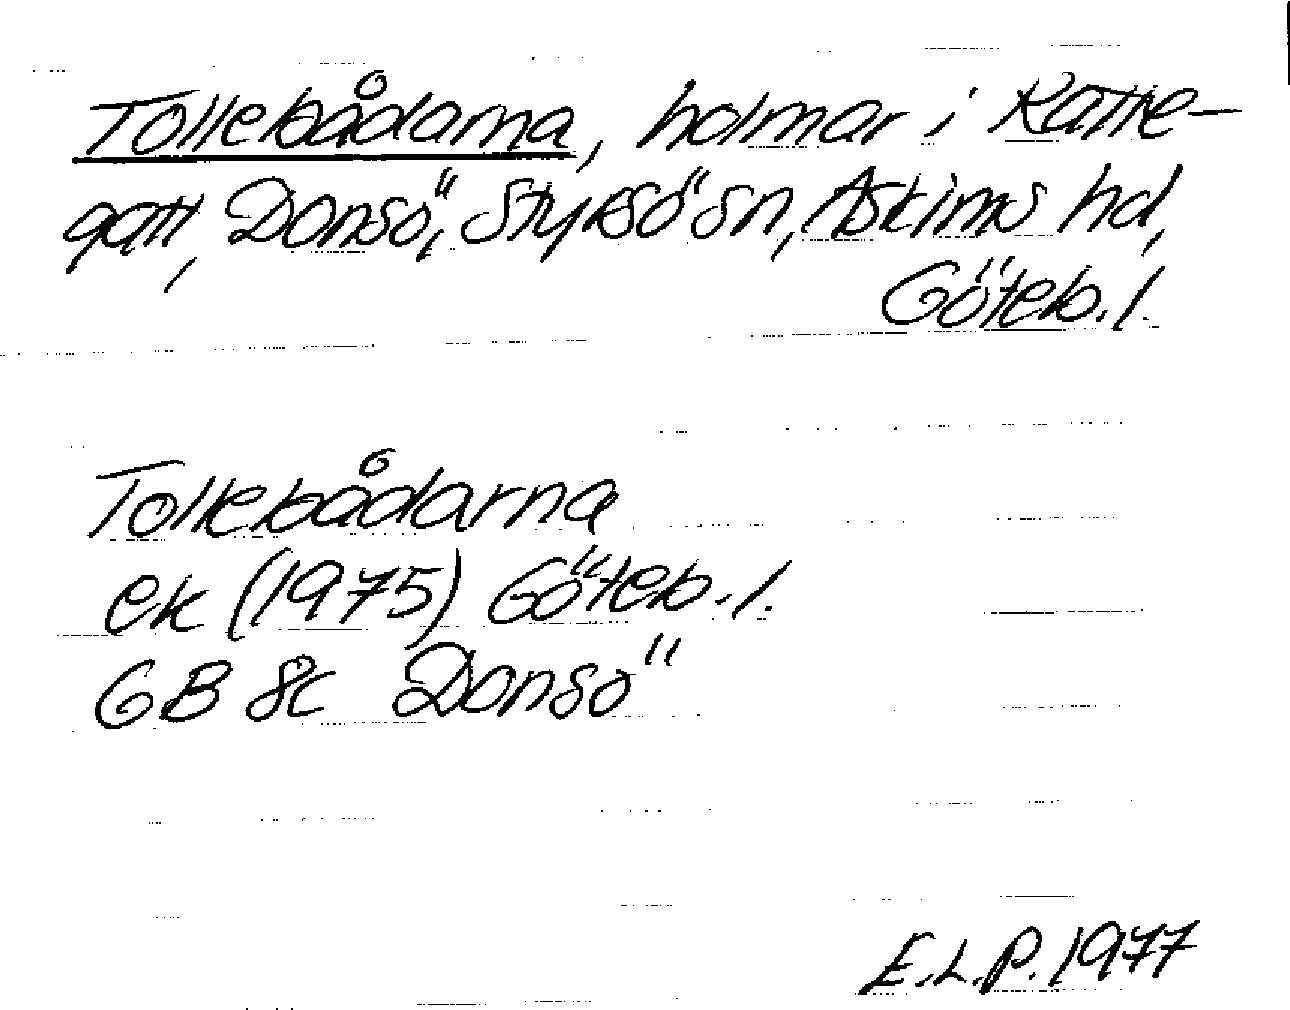 Tollebådarna, holmar i Katte-
gatt, Donsö, Styrsö sn, Askims hd,
Göteb. l.
Tollebådarna
ek (1975) Göteb. l.
GB 8c Donsö
E.L.P. 1977